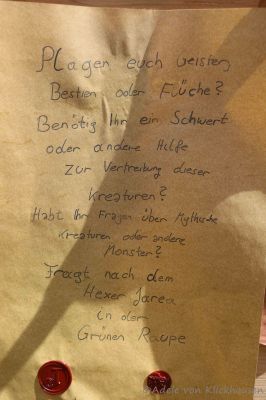 Plagen euch Geister,
Bestien oder Flüche?
Benötig Ihr ein Schwert
oder andere Hilfe
zur Vertreibung dieser
Kreaturen?
Habt Ihr Fragen über Mythische
Kreaturen oder andere
Monster?
Fragt nach dem
Hexer Jarea
in der
Grünen Raupe
Adele von Klickhausen